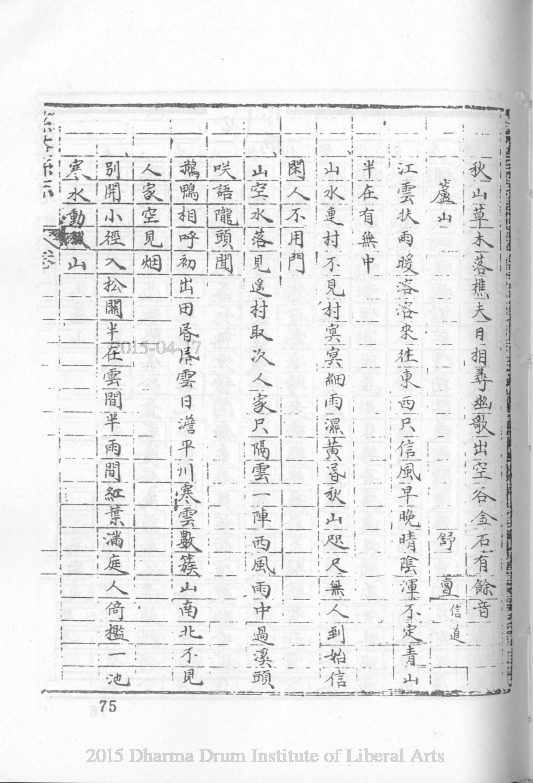 秋山草木落樵夫日相尋幽歌出空谷金石有餘音
蘆山 舒亶信道
江雲扶雨暖溶溶來往東西只信風早晚晴陰渾不定青山
半在有無中
山水重村不見村寞寞細雨濕黃昏秋山咫尺無人到始信
閑人不用門
山空水落見遙村取次人家只隔雲一陣西風雨中過溪頭
咲語隴頭聞
鵝鴨相呼初出田昏昏雲日澹平川寒雲數簇山南北不見
人家空見烟
別開小徑入松關半在雲間半雨間紅葉滿庭人倚檻一池
寒水動秋山
75
2015-04-17
2015 Dharma Drum Institute of Liberal Arts